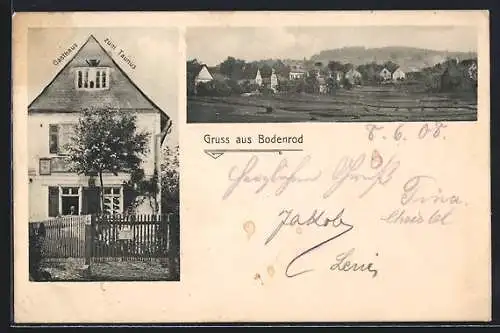 Gasthaus zum Taunus
Gruss aus Bodenrod
8. 6. 08.
Herzlichen Gruß
Tina
Jakob
Leni